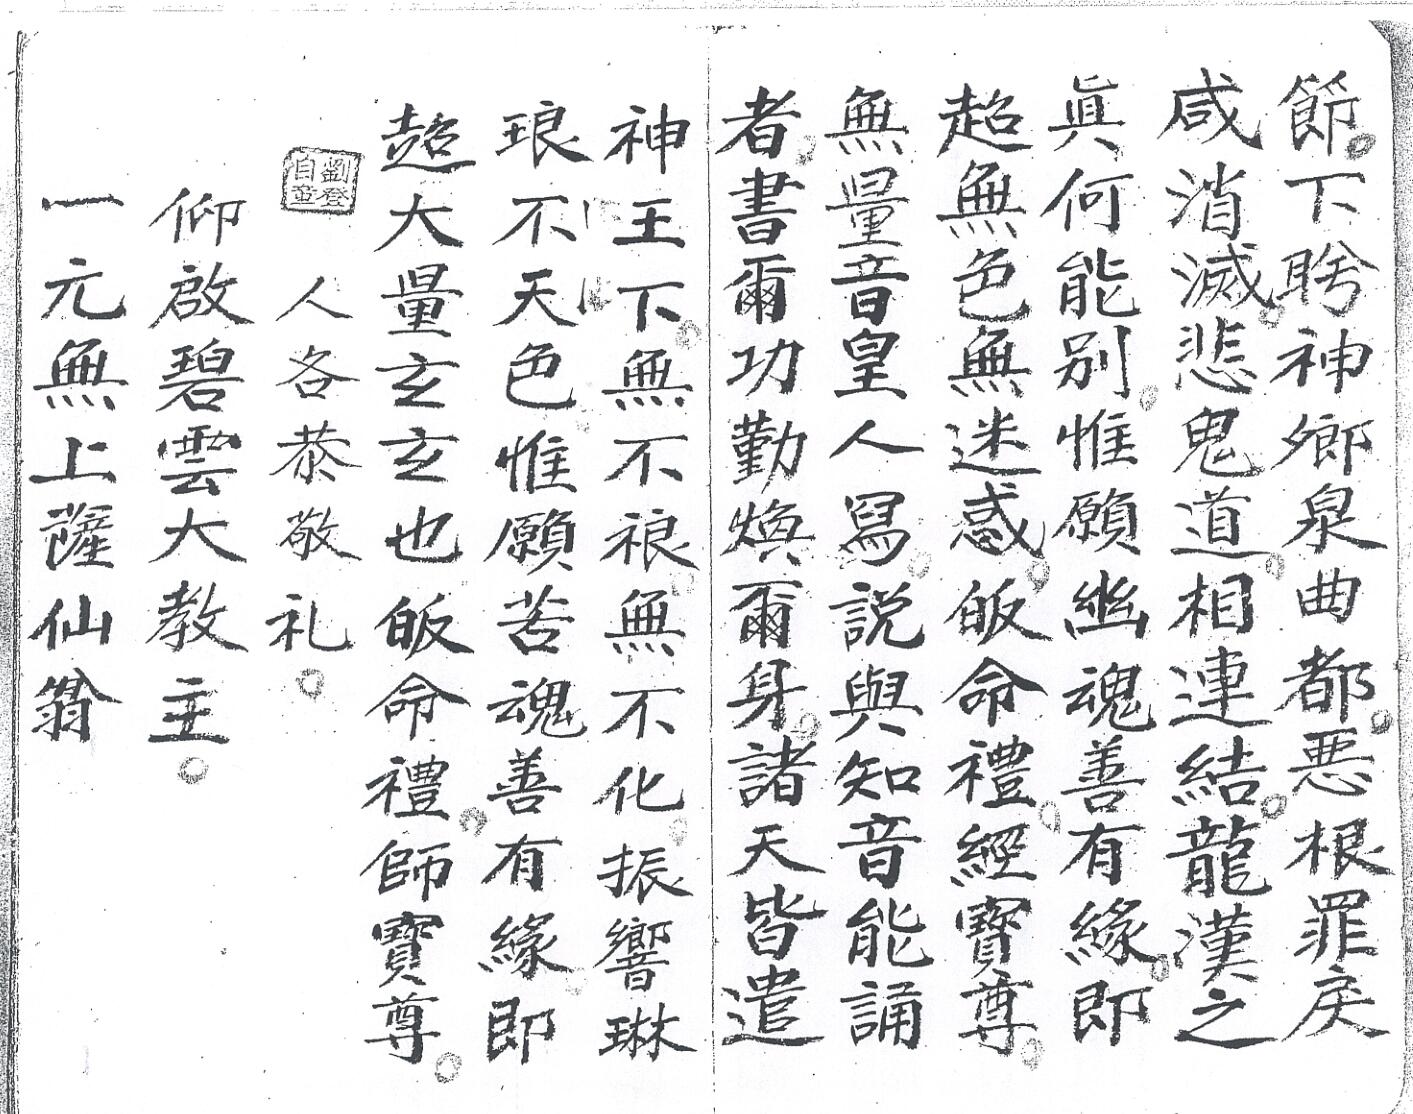 節下聆神鄉泉曲都悪根罪戾
咸消滅悲鬼道相連結龍漢之
眞何能別惟願幽魂善有緣即
超無色無迷惑皈命禮經寶尊
無量音皇人冩説與知音能誦
者書爾功勤煥爾身諸天皆遣
神王下無不禄無不化振響琳
琅不天色惟願苦魂善有緣即
超大量玄玄也皈命禮師寶尊
劉登
自置
人各恭敬礼
仰啟碧雲大教主
一元無上薩仙翁